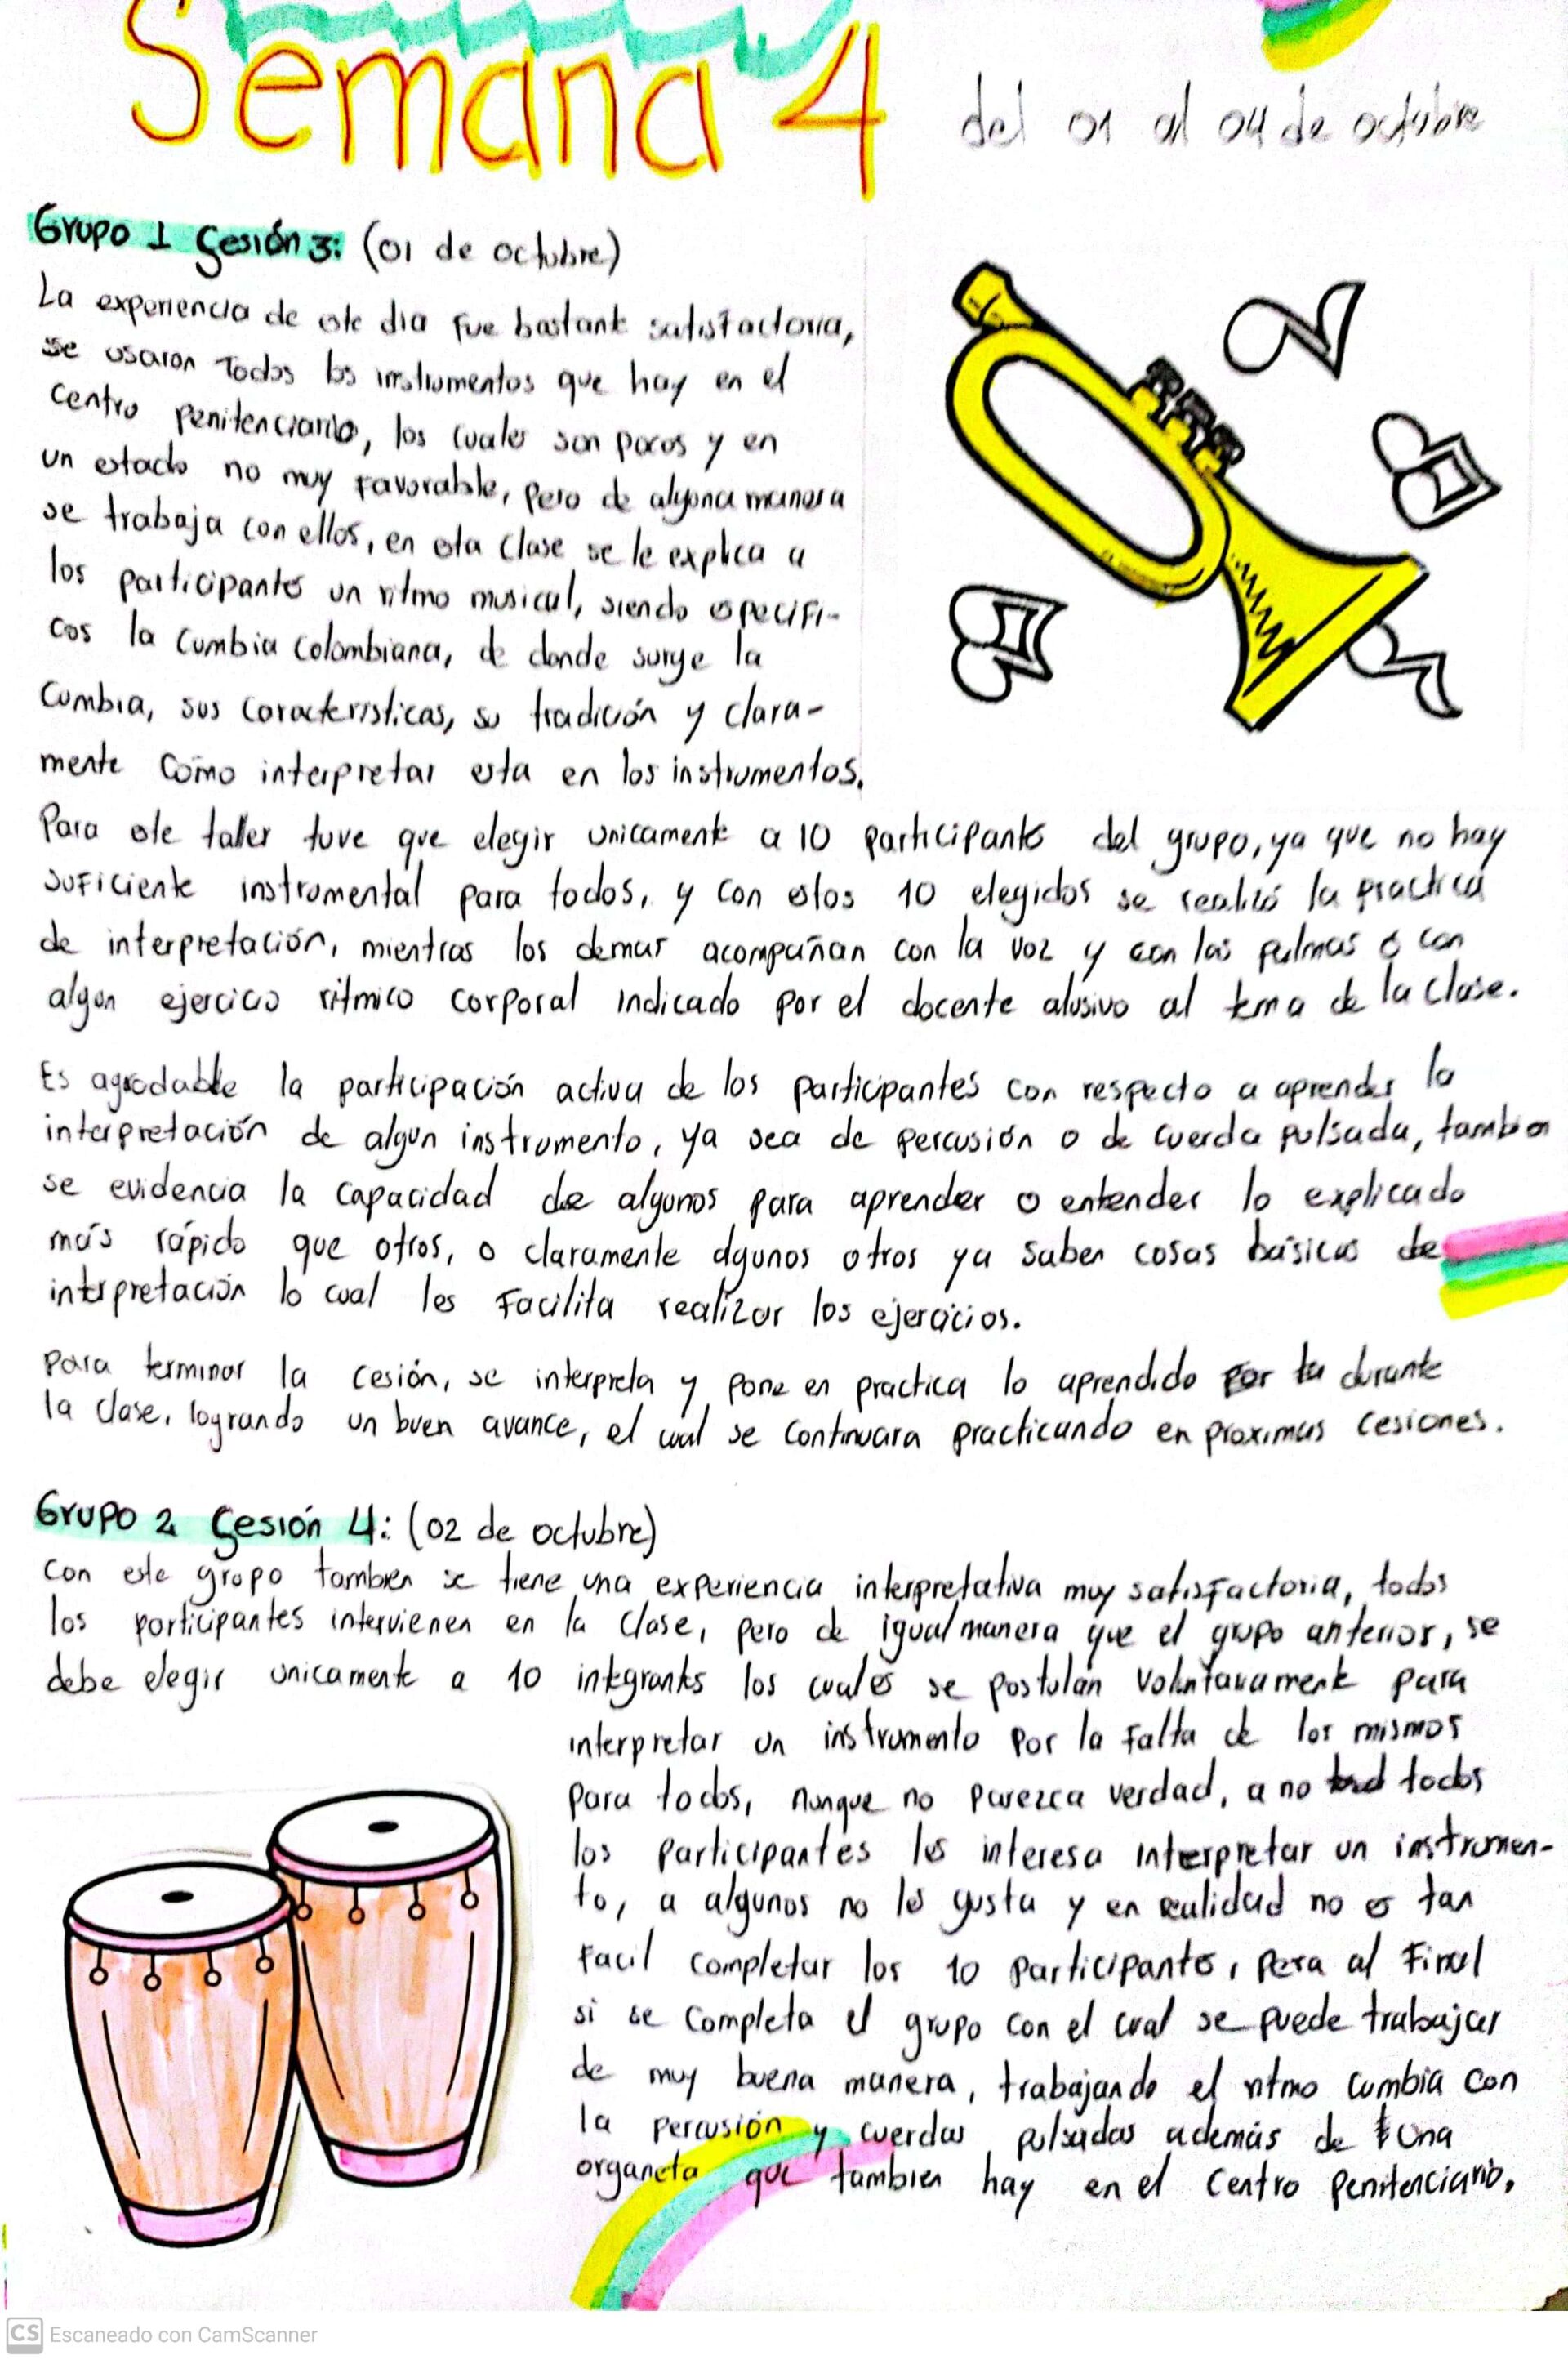 Semana 4
del 01 al 04 de octubre
Grupo 1 Cesión 3: (01 de octubre)
La experiencia de este dia fue bastante satisfactoria,
se usaron Todos los instrumentos que hay en el
Centro penitenciario, los cuales son pocos y en
un estado no muy favorable, pero de alguna manera
se trabaja con ellos, en esta clase se le explica a
los participantes un ritmo musical, siendo especifi-
cos la Cumbia Colombiana, de donde surge la
Cumbia, sus características, su tradición y clara-
mente como interpretar esta en los instrumentos.
Para este taller tuve que elegir unicamente a 10 participantes del grupo, ya que no hay
suficiente instrumental para todos, y con estos 10 elegidos se realizó la practica
de interpretación, mientras los demas acompañan con la voz y con las palmas o con
algun ejercicio ritmico corporal indicado por el docente alusivo al tema de la clase.
Es agradable la participación activa de los participantes con respecto a aprender la
interpretación de algun instrumento, ya sea de percusión o de cuerda pulsada, tambien
se evidencia la capacidad de algunos para aprender o entender lo explicado
más rápido que otros, o claramente algunos otros ya saben cosas básicas de
interpretación lo cual les facilita realizar los ejercicios.
Para terminar la cesión, se interpreta y pone en practica lo aprendido durante
la clase, logrando un buen avance, el cual se continuara practicando en proximas cesiones.
Grupo 2 Cesión 4: (02 de octubre)
Con este grupo tambien se tiene una experiencia interpretativa muy satisfactoria, todos
los participantes intervienen en la clase, pero de igual manera que el grupo anterior, se
debe elegir unicamente a 10 integrantes los cuales se postulan voluntariamente para
interpretar un instrumento por la falta de los mismos
para todos, Aunque no parezca verdad, a no todos
los participantes les interesa interpretar un instrumen-
to, a algunos no les gusta y en realidad no es tan
facil completar los 10 participantes, pero al final
si se completa el grupo con el cual se puede trabajar
de muy buena manera, trabajando el ritmo cumbia con
la percusión y cuerdas pulsadas además de una
organeta que tambien hay en el Centro penitenciario.
CS Escaneado con CamScanner